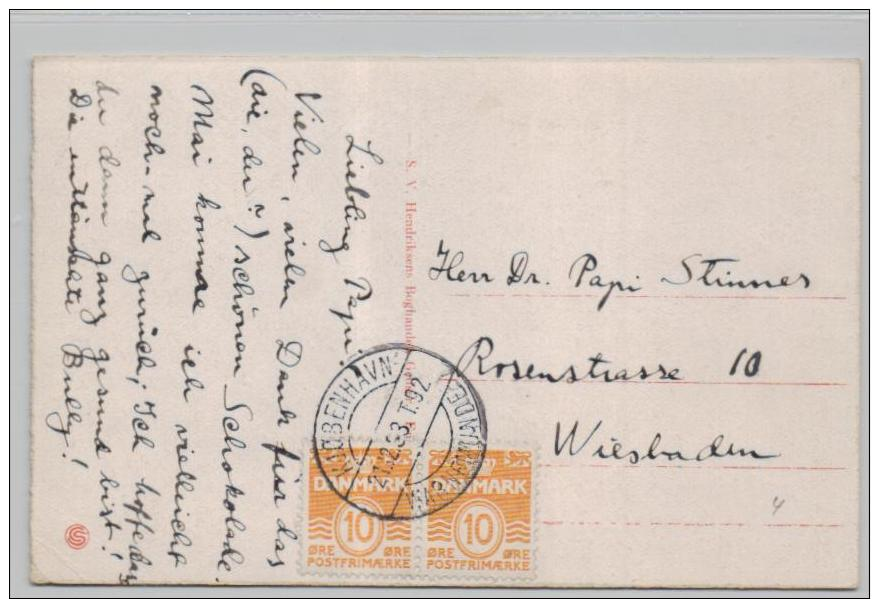 Liebling Papi!
Vielen, vielen Dank für das
(die, der?) schönen Schokolade.
Mai komme ich vielleicht
noch-mal zurück; Ich hoffe das
du dann ganz gesund bist!
Die
Bully!
S. V. Hendriksens Boghandel,
Herr Dr. Papi Stinnes
Rosenstrasse 10
Wiesbaden
4
KJØBENHAVN
DANMARK
10
ØRE ØRE
POSTFRIMÆRKE
DANMARK
10
ØRE ØRE
POSTFRIMÆRKE